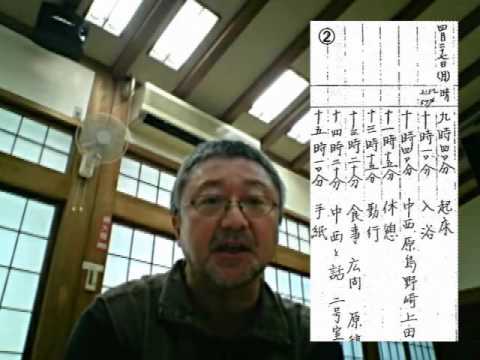 ②
四月二十七日(月)晴
九時四〇分 起床
十時一〇分 入浴
十一時四〇分 中西原島野崎上田
十一時五分 休憩
十三時十五分 勤行
十三時二十分 食事 広間 原
十四時二十分 中西と話 二号室
十五時一〇分 手紙